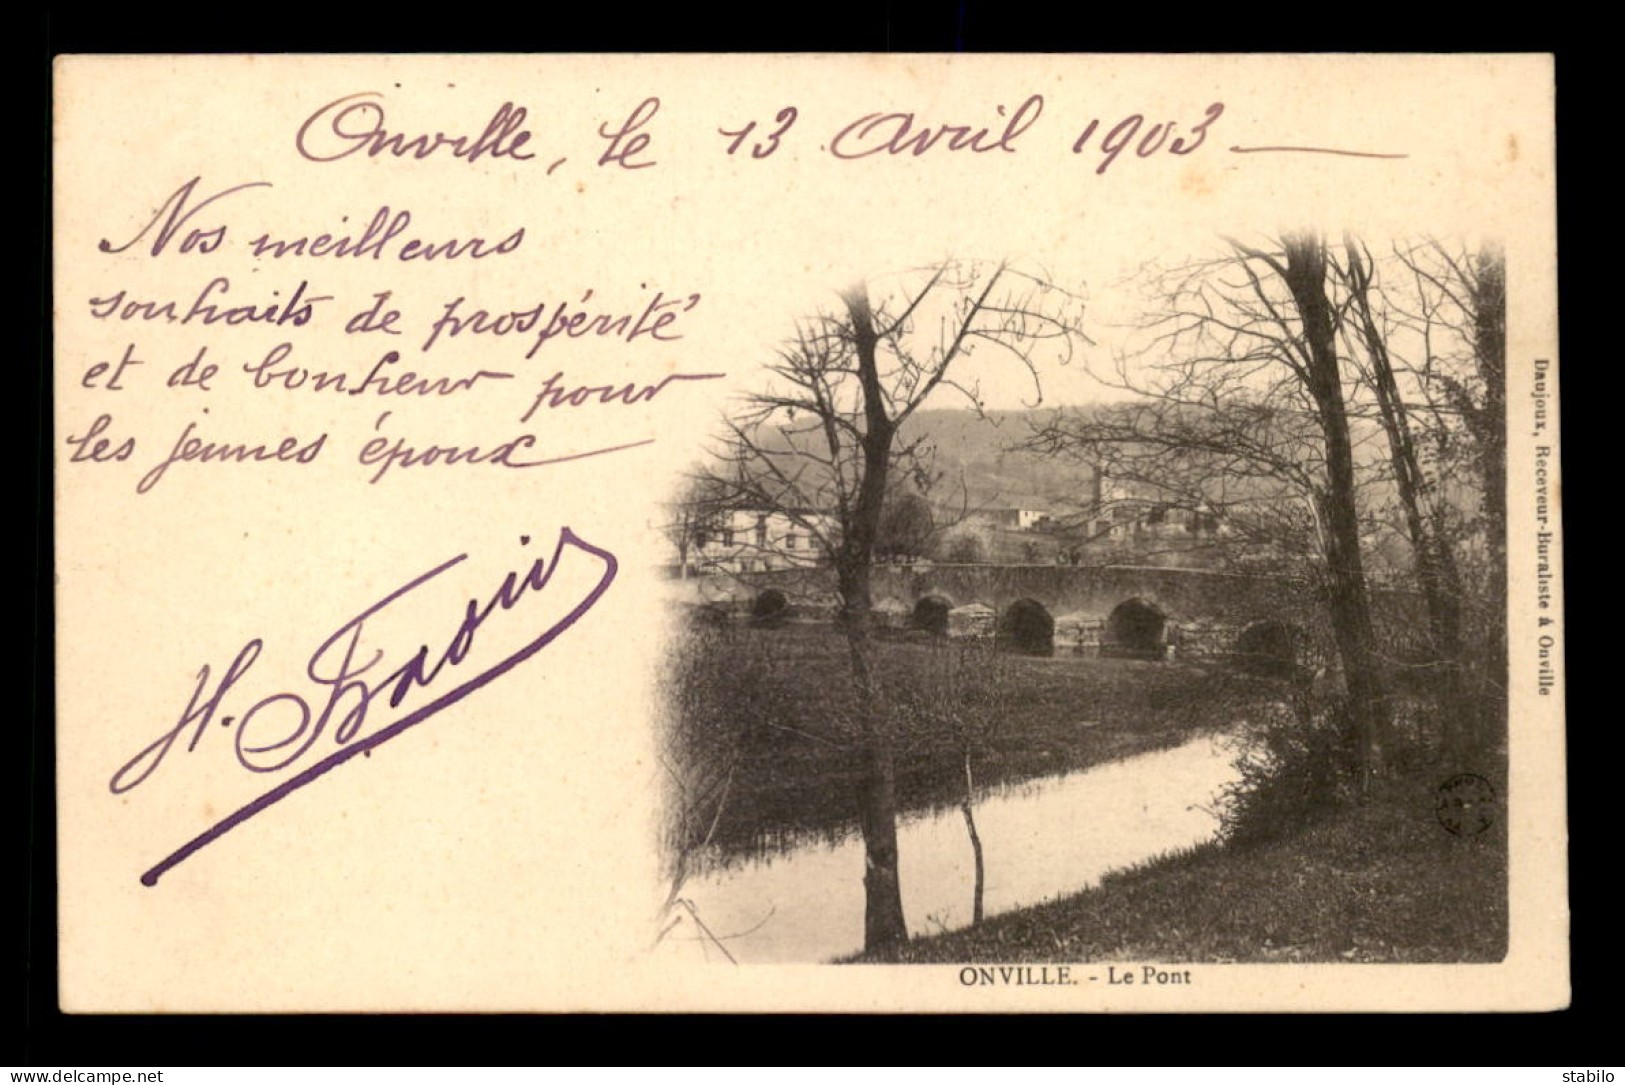 Onville, le 13 Avril 1903
Nos meilleurs
souhaits de prospérité
et de bonheur pour
les jeunes époux
H.
Daujoux, Receveur-Buraliste à Onville
ONVILLE. - Le Pont
www.delcampe.net
stabilo